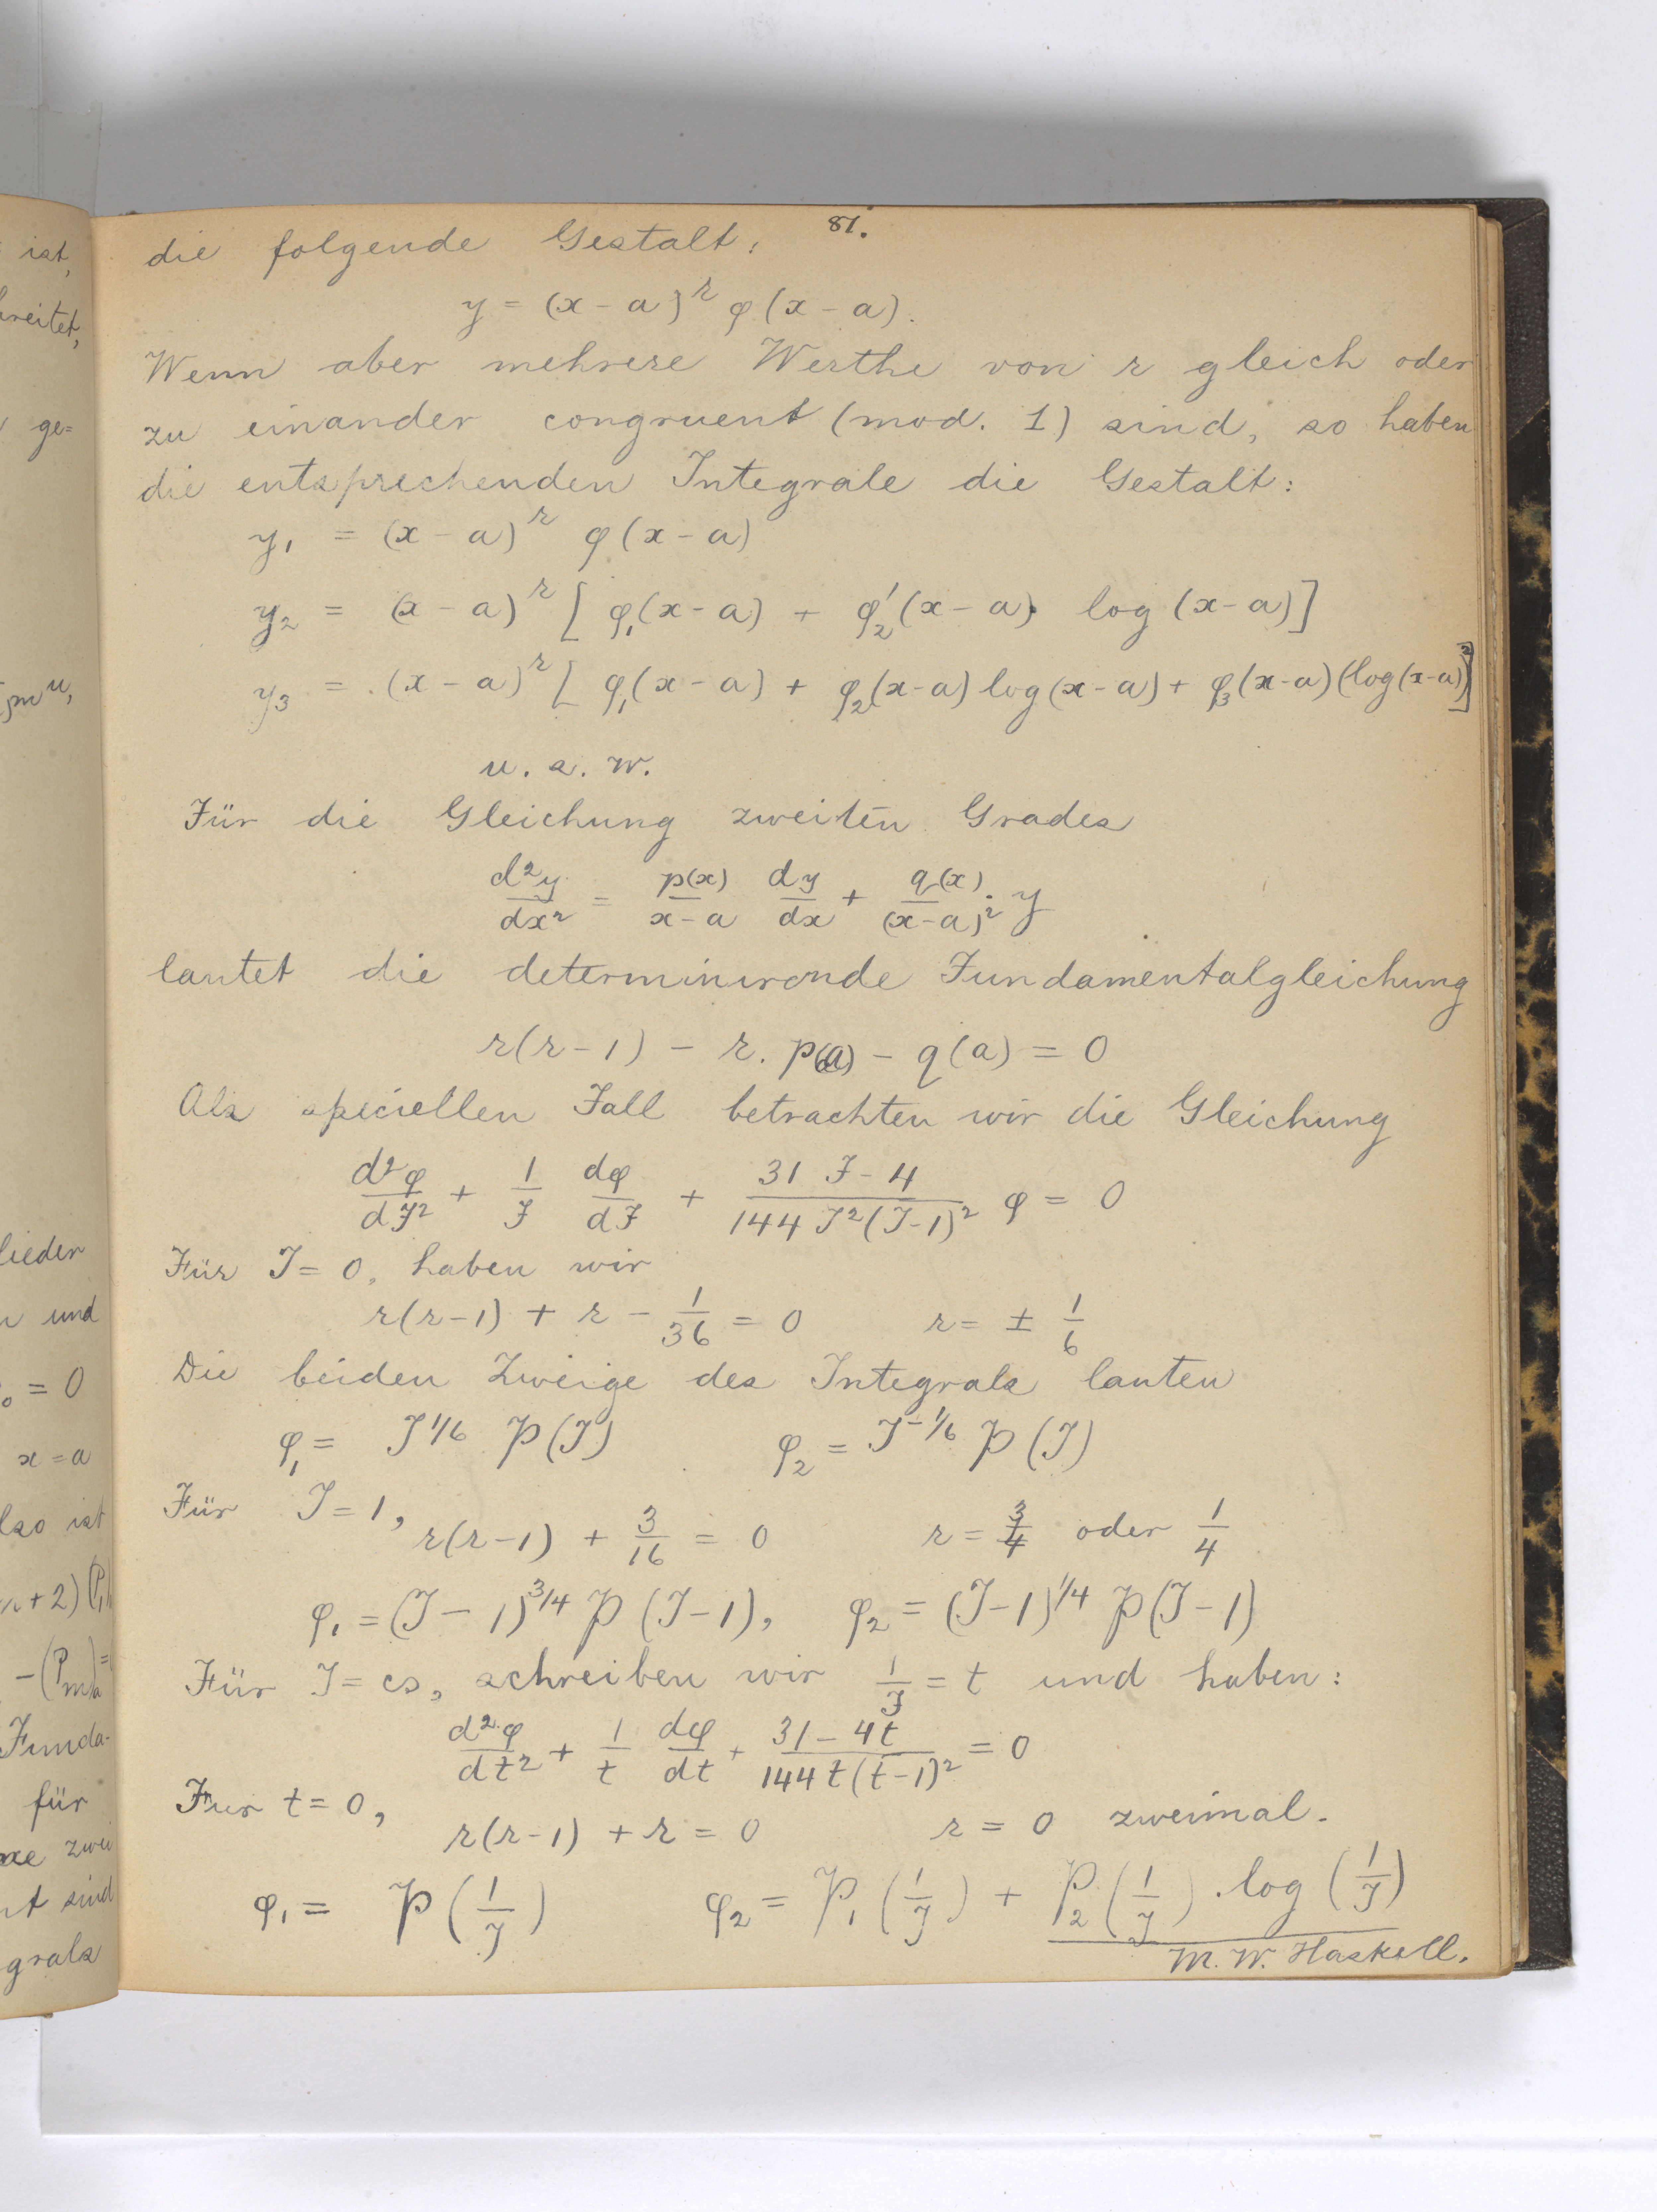 81.
die folgende Gestalt:
y = (x - a)^r φ(x - a).
Wenn aber mehrere Werthe von r gleich oder
zu einander congruent (mod. 1) sind, so haben
die entsprechenden Integrale die Gestalt:
y₁ = (x - a)^r φ(x - a)
y₂ = (x - a)^r [φ₁(x - a) + φ₂'(x - a) · log (x - a)]
y₃ = (x - a)^r [φ₁(x - a) + φ₂(x - a) log (x - a) + φ₃(x - a) (log (x - a))²]
u. s. w.
Für die Gleichung zweiten Grades
d²y/dx² = p(x)/(x - a) dy/dx + q(x)/(x - a)² · y
lautet die determinirende Fundamentalgleichung
r(r - 1) - r. p(a) - q(a) = 0
Als speciellen Fall betrachten wir die Gleichung
d²φ/dJ² + 1/J dφ/dJ + (31 J - 4)/(144 J²(J - 1)²) φ = 0
Für J = 0, haben wir
r(r - 1) + r - 1/36 = 0 r = ± 1/6
Die beiden Zweige des Integrals lauten
φ₁ = J^1/6 P(J) φ₂ = J^-1/6 P(J)
Für J = 1, r(r - 1) + 3/16 = 0 r = 3/4 oder 1/4
φ₁ = (J - 1)^3/4 P(J - 1), φ₂ = (J - 1)^1/4 P(J - 1)
Für J = ∞, schreiben wir 1/J = t und haben:
d²φ/dt² + 1/t dφ/dt + (31 - 4t)/(144 t(t - 1)²) = 0
Fur t = 0, r(r - 1) + r = 0 r = 0 zweimal.
φ₁ = P(1/J) φ₂ = P₁(1/J) + P₂(1/J) · log (1/J)
M. W. Haskell.
ist,
breitet,
ge=
lieder
und
= 0
x = a
also ist
Funda-
für
zwei
sind
grals